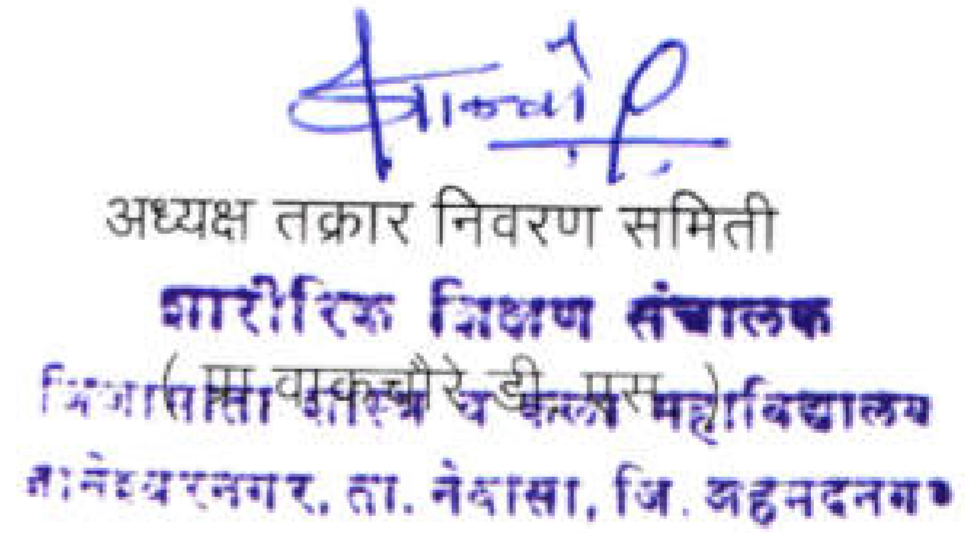 अध्यक्ष तक्रार निवरण समिती
शारीरिक शिक्षण संचालक
( प्रा वाकचौरे डी. एस. )
जिजामाता शास्त्र व कला महाविद्यालय
ज्ञानेश्वरनगर, ता. नेवासा, जि. अहमदनगर